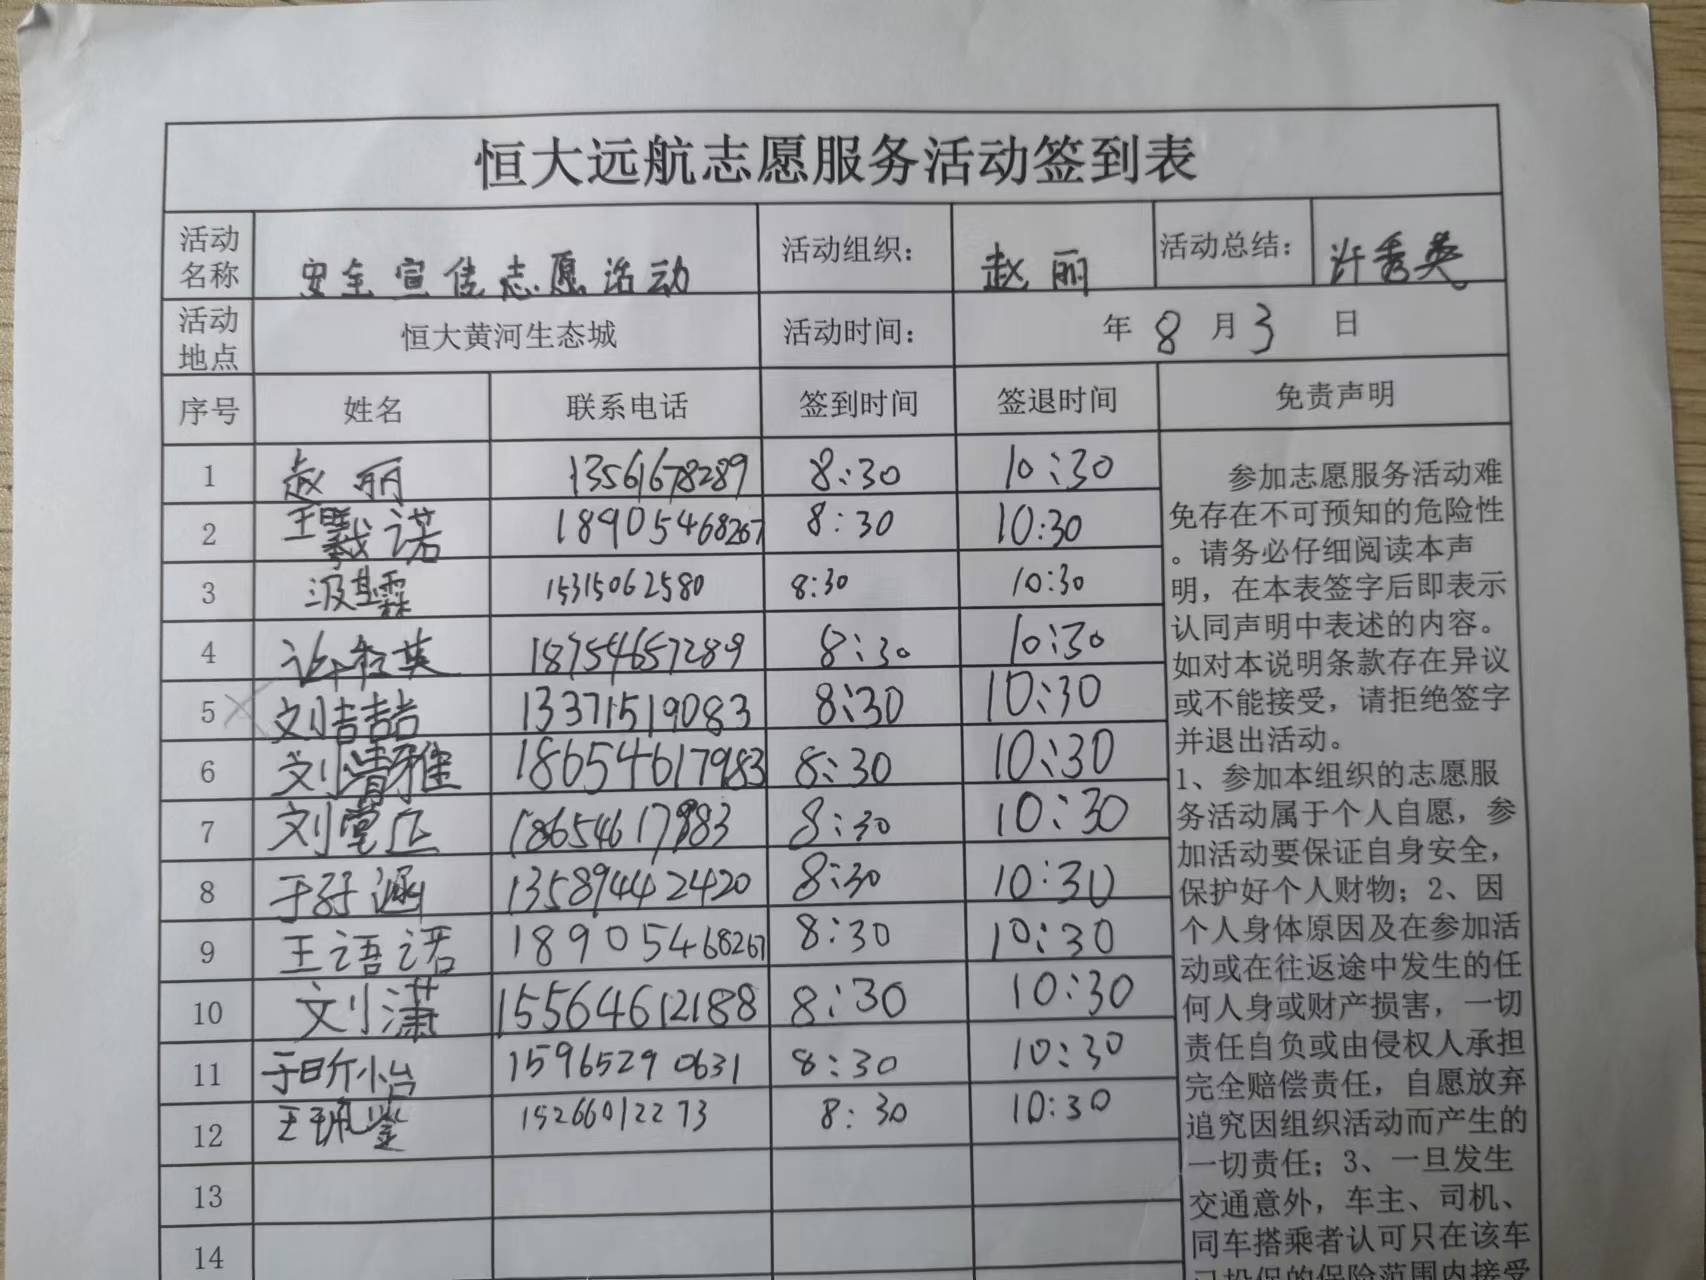 恒大远航志愿服务活动签到表
活动名称 安全宣传志愿活动 活动组织： 赵丽 活动总结： 许秀英
活动地点 恒大黄河生态城 活动时间： 年 8 月 3 日
序号 姓名 联系电话 签到时间 签退时间 免责声明
1 赵丽 13561678289 8:30 10:30
2 王戬诺 18905468267 8:30 10:30
3 汲基霖 15315062580 8:30 10:30
4 许秀英 18754657289 8:30 10:30
5 刘喆 13371519083 8:30 10:30
6 刘清雅 18654617983 8:30 10:30
7 刘 18654617983 8:30 10:30
8 于舒涵 13589442420 8:30 10:30
9 王语诺 18905468267 8:30 10:30
10 刘潇 15564612188 8:30 10:30
11 于昕怡 15965290631 8:30 10:30
12 王珮鉴 15266012273 8:30 10:30
13
14
参加志愿服务活动难
免存在不可预知的危险性
。请务必仔细阅读本声
明，在本表签字后即表示
认同声明中表述的内容。
如对本说明条款存在异议
或不能接受，请拒绝签字
并退出活动。
1、参加本组织的志愿服
务活动属于个人自愿，参
加活动要保证自身安全，
保护好个人财物；2、因
个人身体原因及在参加活
动或在往返途中发生的任
何人身或财产损害，一切
责任自负或由侵权人承担
完全赔偿责任，自愿放弃
追究因组织活动而产生的
一切责任；3、一旦发生
交通意外，车主、司机、
同车搭乘者认可只在该车
已投保的保险范围内接受